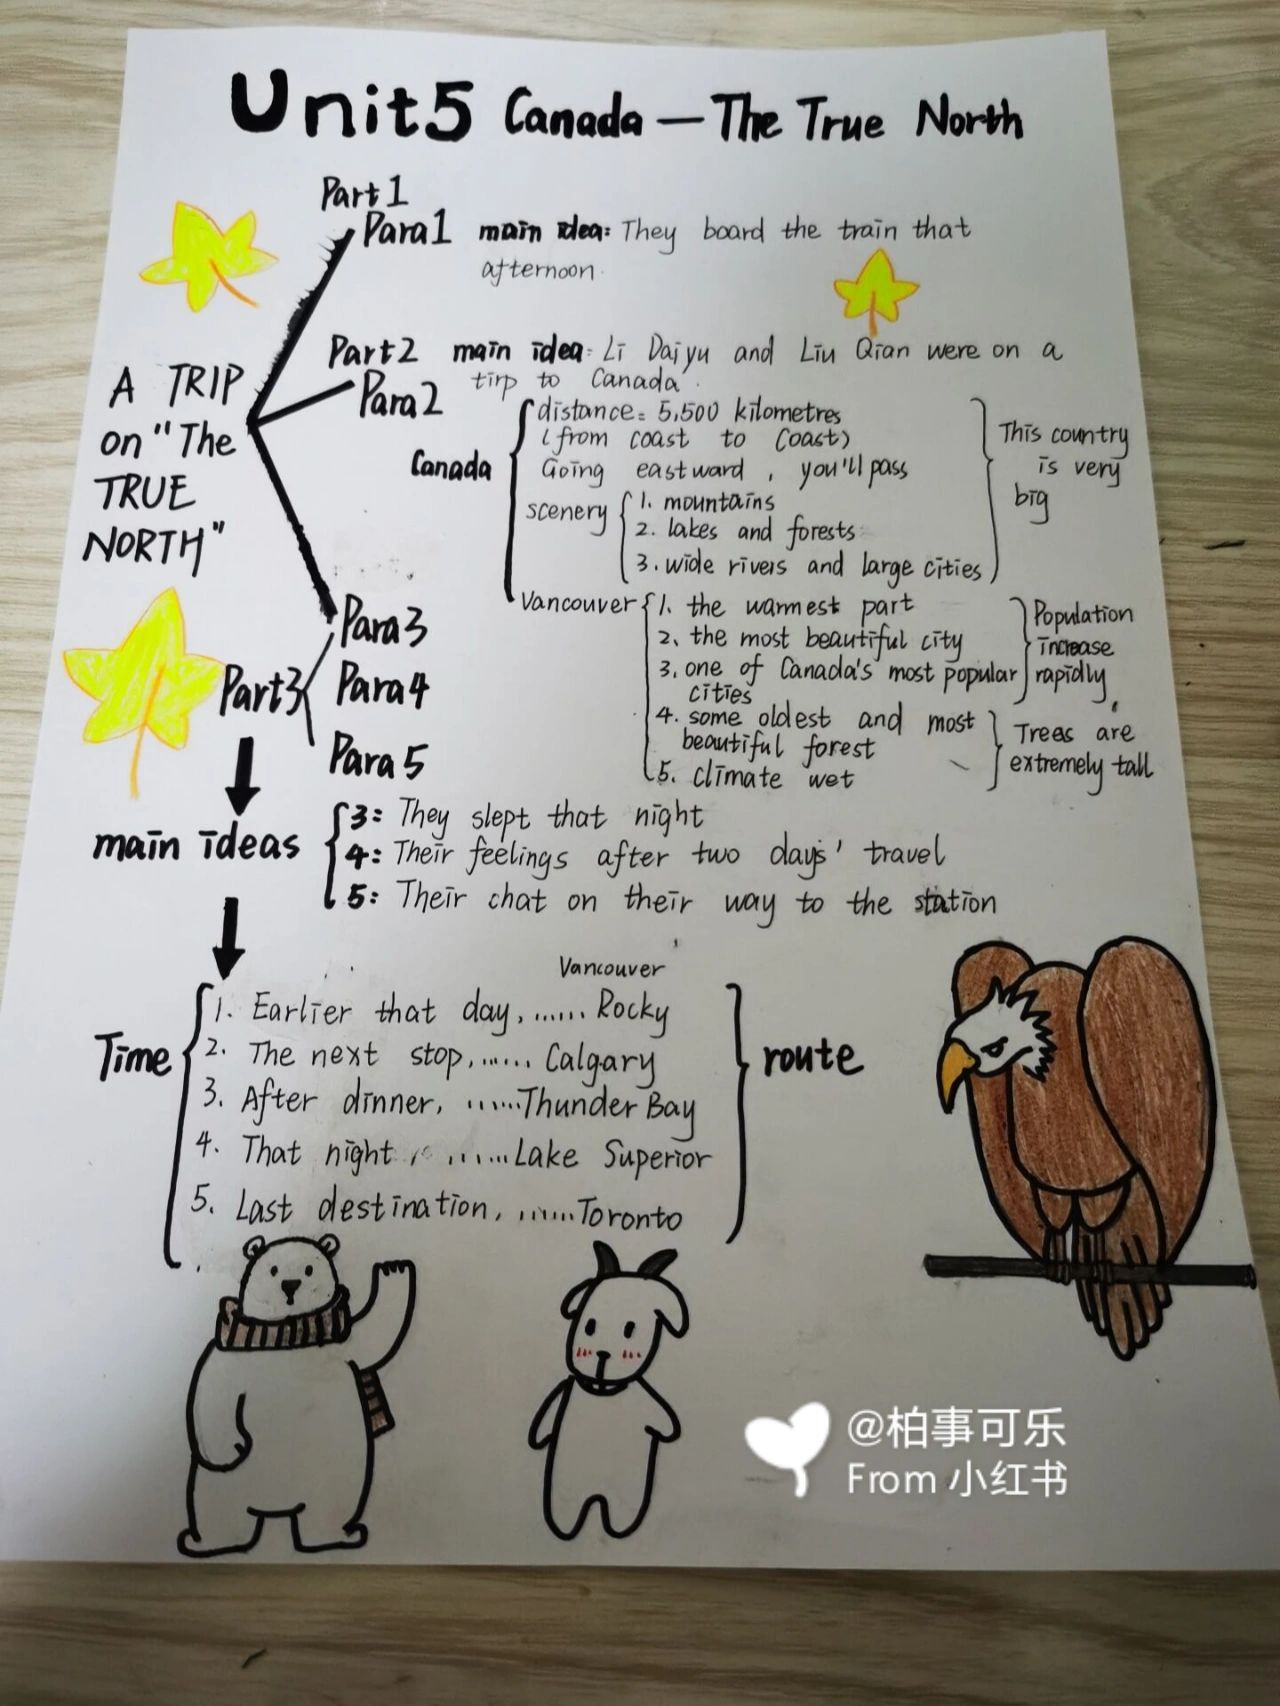 Unit5 Canada — The True North
Part1
Para1 main idea: They board the train that
afternoon.
Part2 main idea: Li Daiyu and Liu Qian were on a
tirp to Canada.
Para2
A TRIP
on "The
TRUE
NORTH"
Canada
distance: 5,500 kilometres
(from coast to coast)
Going eastward, you'll pass
scenery
1. mountains
2. lakes and forests
3. wide rivers and large cities
This country
is very
big
Vancouver
1. the warmest part
2. the most beautiful city
3. one of Canada's most popular
cities
4. some oldest and most
beautiful forest
5. climate wet
Population
increase
rapidly
Trees are
extremely tall
Part3
Para3
Para4
Para5
main ideas
3: They slept that night
4: Their feelings after two days' travel
5: Their chat on their way to the station
Time
Vancouver
1. Earlier that day, ...... Rocky
2. The next stop, ...... Calgary
3. After dinner, ...... Thunder Bay
4. That night, ...... Lake Superior
5. Last destination, ...... Toronto
route
@柏事可乐
From 小红书